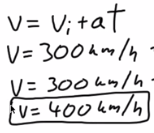 v = vᵢ + at
v = 300 km/h -
v = 300 km/h
v = 400 km/h